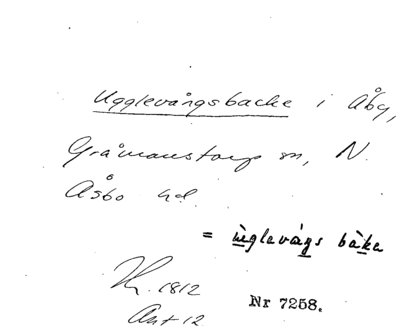 Ugglevångsbacke i Åby,
Gråmanstorps sn, N.
Åsbo hd.
= ùglevågs bàke
1812
Ant 12
Nr 7258.